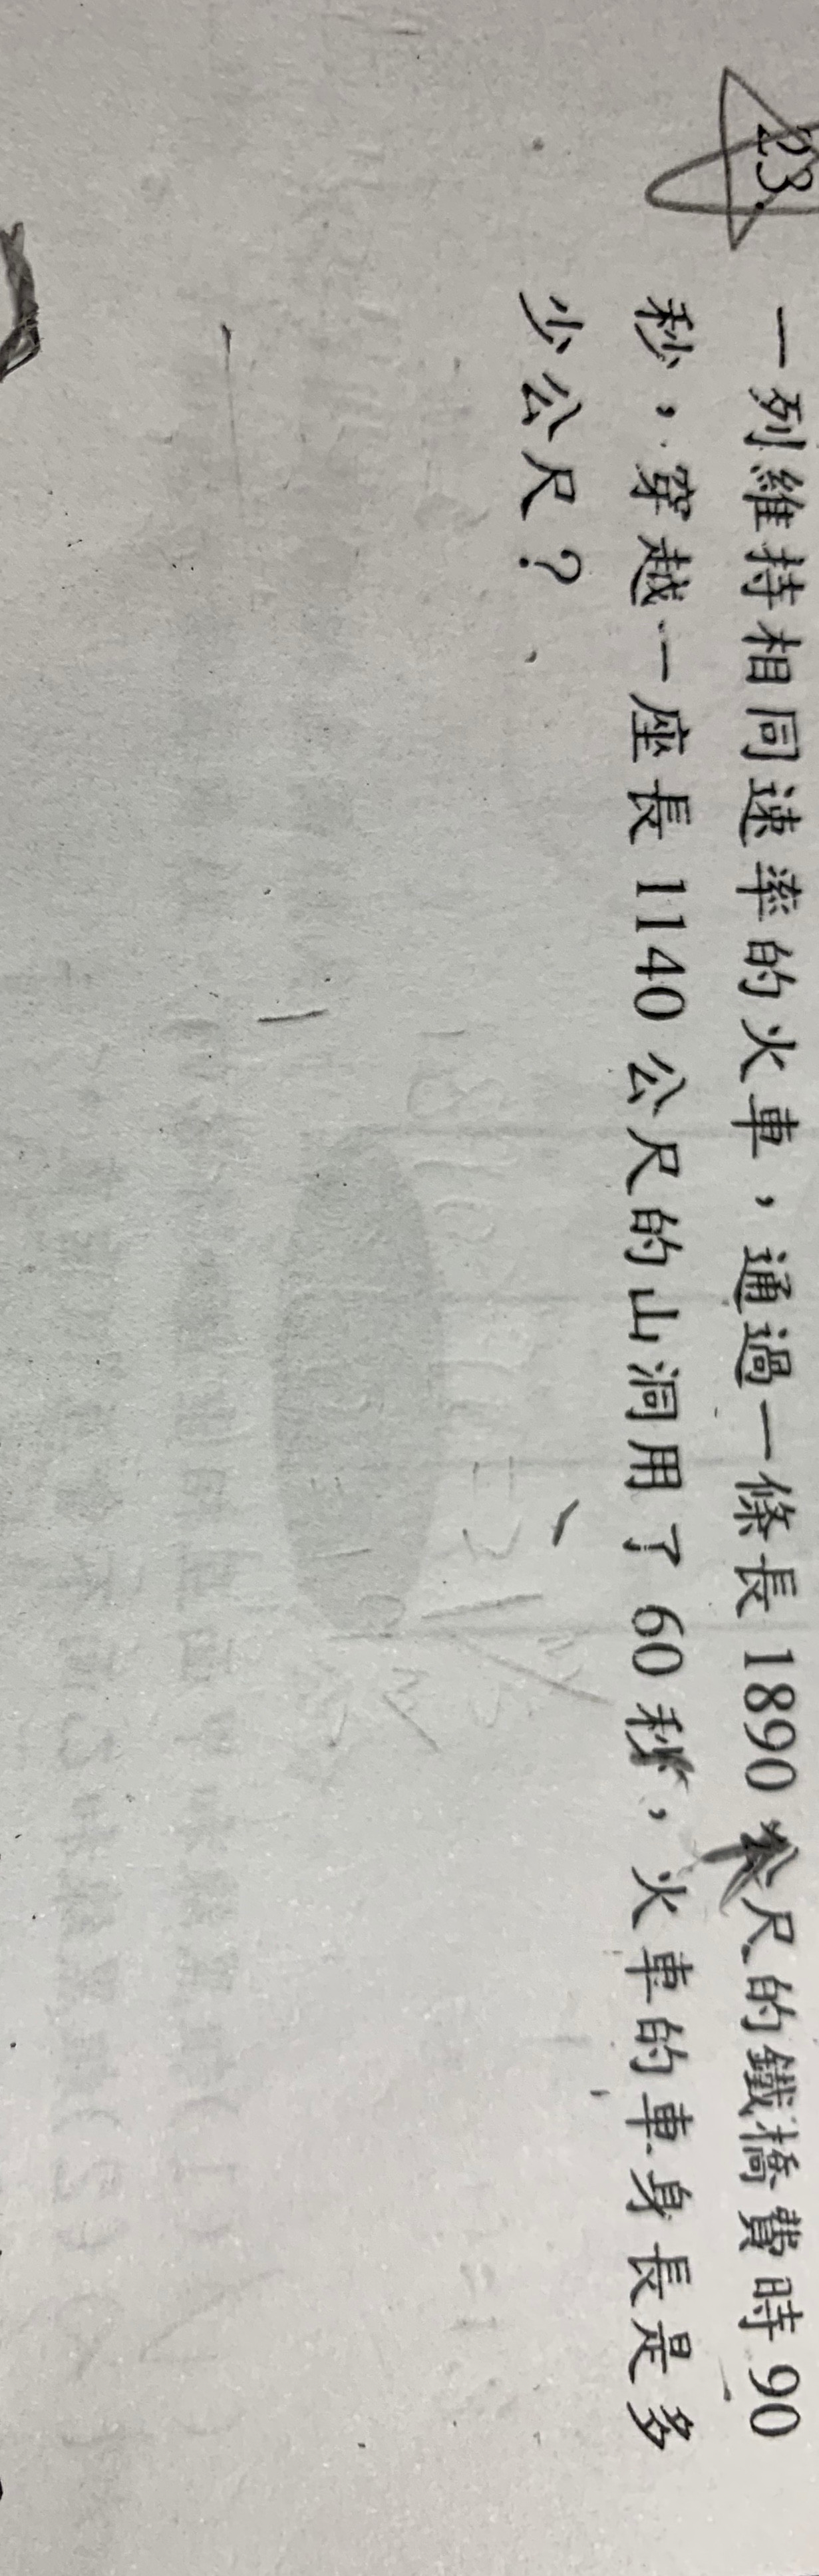 23. 一列維持相同速率的火車，通過一條長 1890 公尺的鐵橋費時 90
秒，穿越一座長 1140 公尺的山洞用了 60 秒，火車的車身長是多
少公尺？